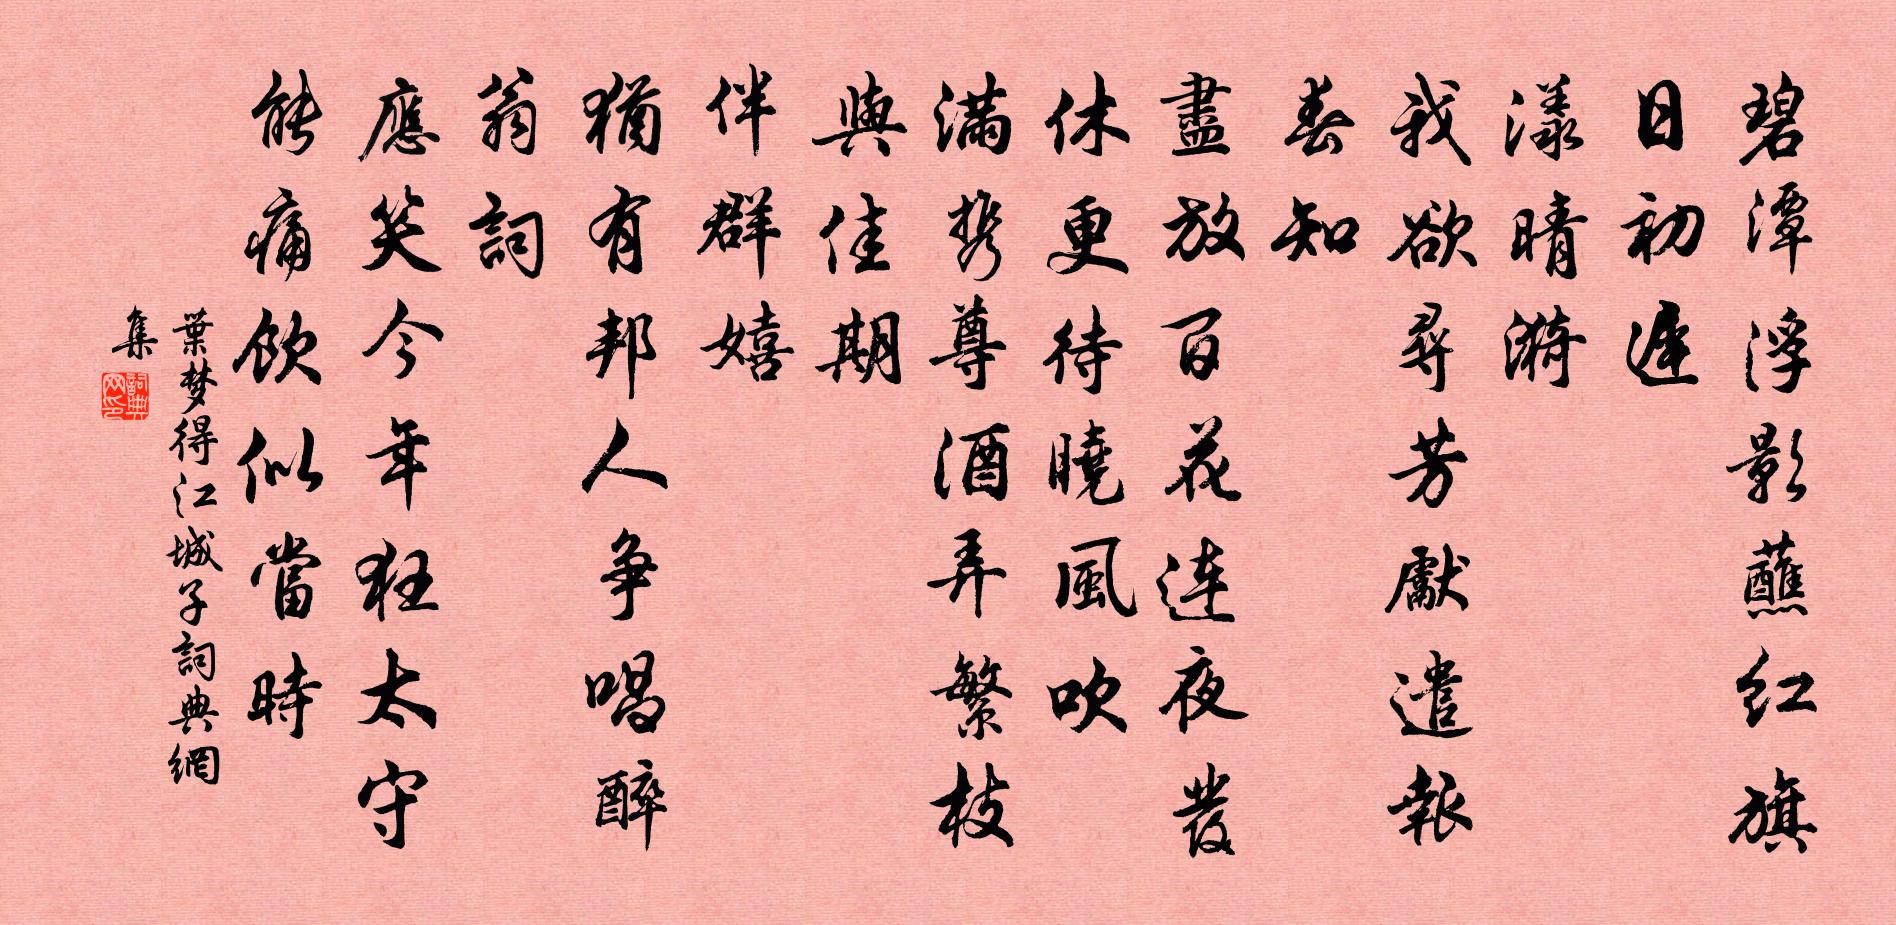 碧潭浮影蘸红旗
日初遲
漾晴漪
我欲尋芳獻遣報
春知
盡放百花連夜發
休更待曉風吹
滿携尊酒弄繁枝
與佳期
伴群嬉
猶有邦人争唱醉
翁詞
應笑今年狂太守
能痛飲似當時
葉梦得江城子詞典網
集
詞典
网印